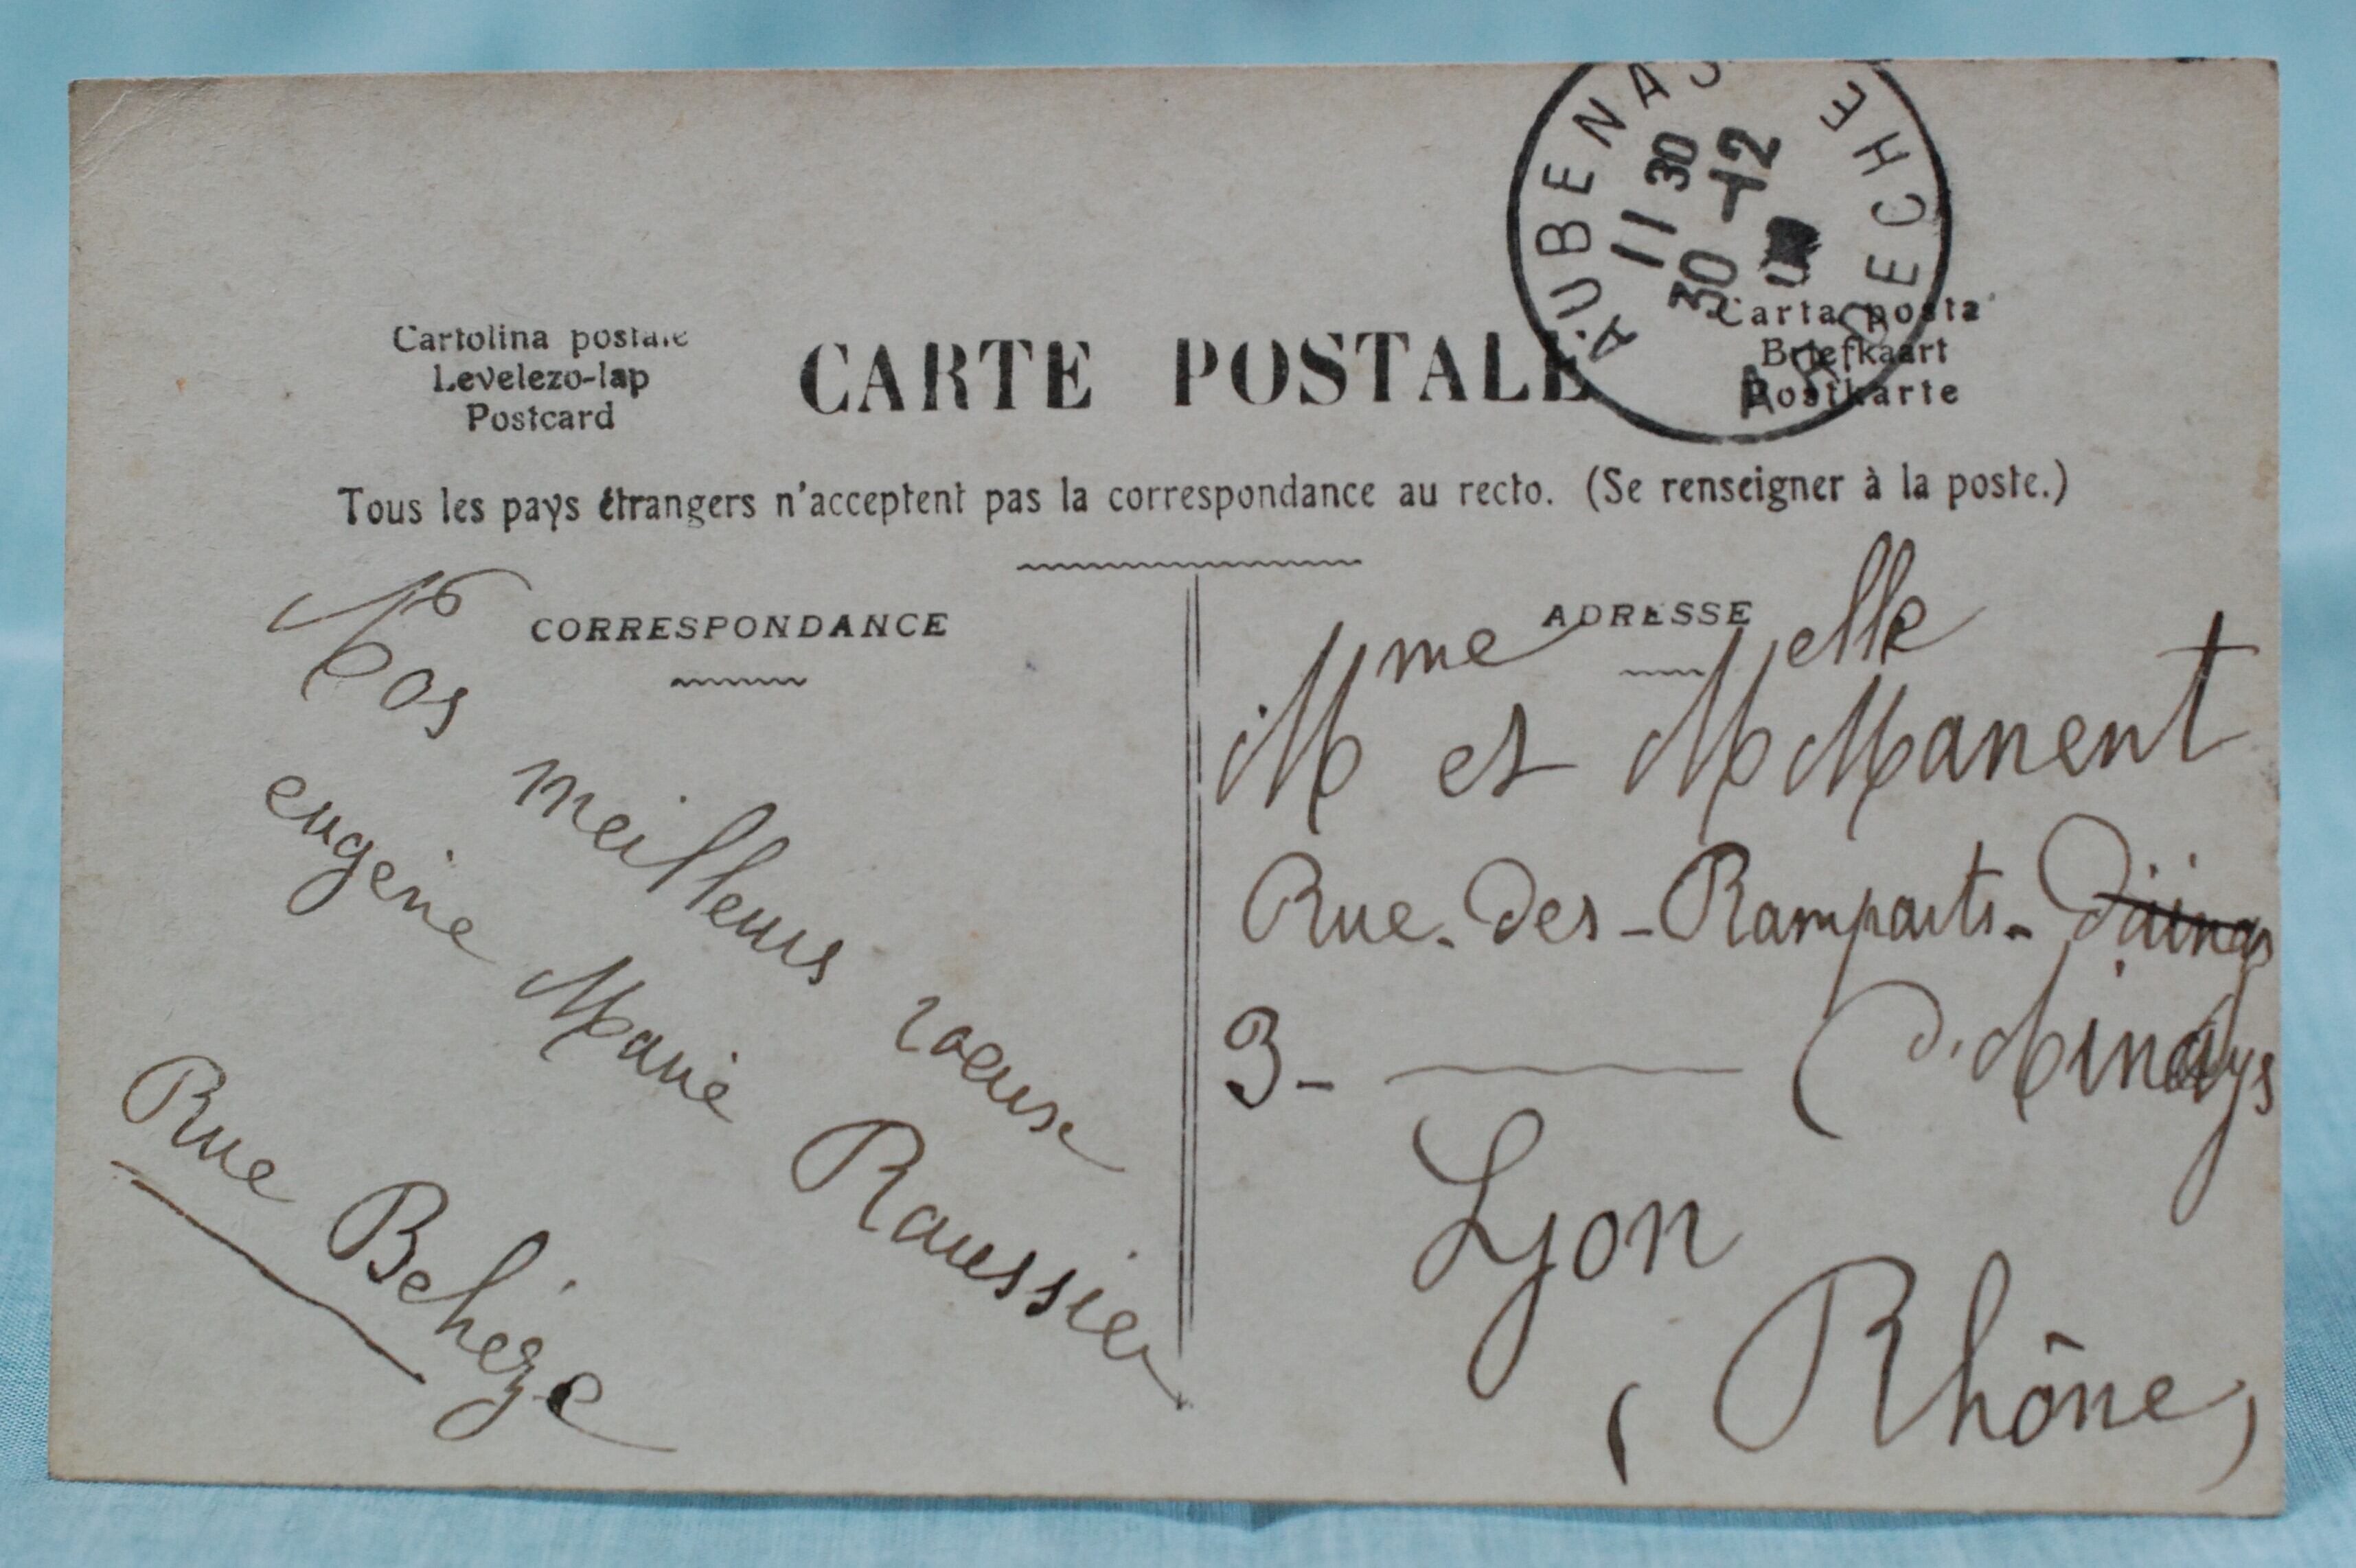 AUBENAS
ARDECHE
11 30
30-12
Cartolina postale
Levelezo-lap
Postcard
CARTE POSTALE
Carta posta
Briefkaart
Postkarte
Tous les pays étrangers n'acceptent pas la correspondance au recto. (Se renseigner à la poste.)
CORRESPONDANCE
Nos meilleurs voeux
eugénie Marie Raussier
Rue Behéze
ADRESSE
Mme et Melle Manent
Rue-des-Ramparts-
3- (d'Ainays
Lyon
(Rhône)